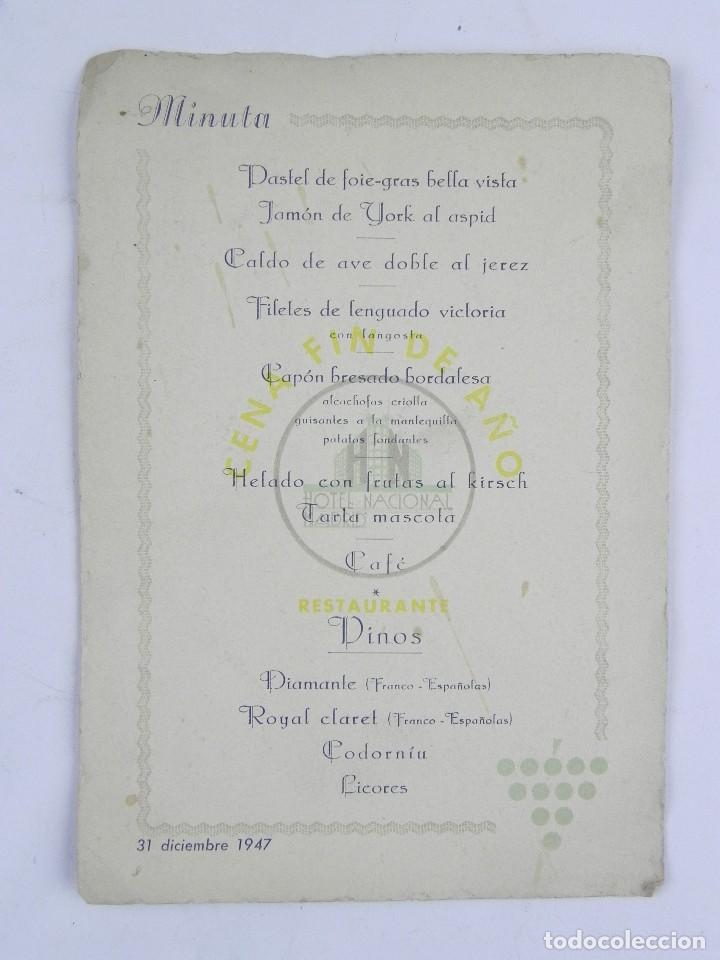 Minuta
Pastel de foie-gras bella vista
Jamón de York al aspid
Caldo de ave doble al jerez
Filetes de lenguado victoria
con langosta
CENA FIN DE AÑO
Capón bresado bordalesa
alcachofas criolla
guisantes a la mantequilla
patatas fondantes
HN
HOTEL NACIONAL
MADRID
Helado con frutas al kirsch
Tarta mascota
Café
*
RESTAURANTE
Vinos
Diamante (Franco - Españolas)
Royal claret (Franco - Españolas)
Codorníu
Licores
31 diciembre 1947
todocoleccion
todocoleccion.net